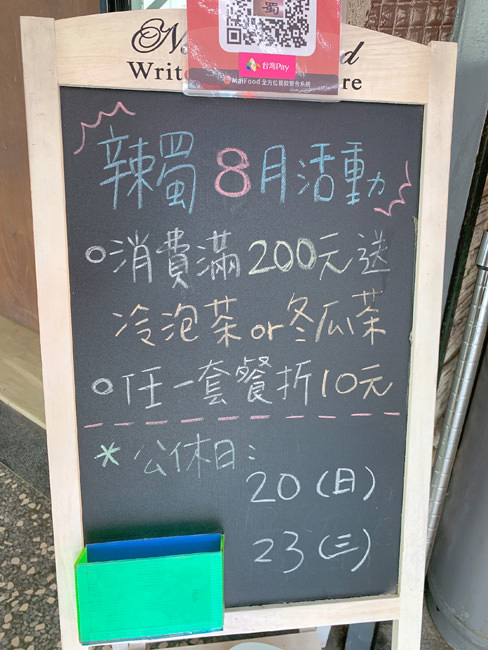 蜀
台灣Pay
Write
re
辣蜀8月活動
消費滿200元送
冷泡茶or冬瓜茶
任一套餐折10元
*公休日:
20(日)
23(三)